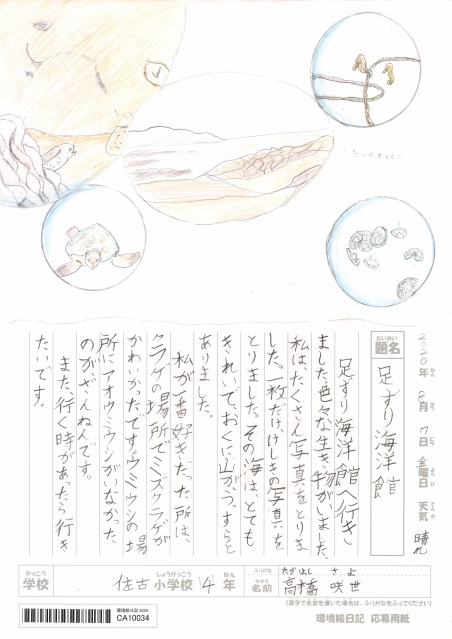 2020年 8月 7日 金曜日 天気 晴れ
題名 足ずり海洋館
足ずり海洋館へ行き
ました。色々な生き物がいました。
私は、たくさん写真をとりま
した。一枚だけ、けしきの写真を
とりました。その海は、とても
きれいで、おくに山がうっすらと
ありました。
私が一番好きだった所は、
クラゲの場所でミズクラゲが
かわいかったです。ウミウシの場
所にアオウミウシがいなかった
のが、ざんねんです。
また、行く時があったら行き
たいです。
がっこう しょうがっこう ねん ふりがな たかはし さよ
学校 佐古 小学校 4年 名前 高橋 咲世
(漢字で名前を書いた場合は、ふりがなをふってください)
環境絵日記 2020
CA10034
環境絵日記 応募用紙